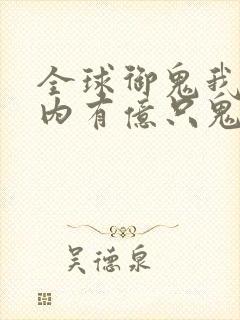 全球御鬼我
内有億只鬼
吴德泉